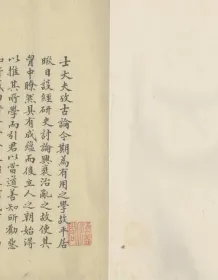 士大夫攷古論今期為有用之學故平居
暇日談經研史討論興衰治亂之故使其
胷中瞭然具有成蘊而後立人之朝始得
以推其所學而引君以當道善知所勸惡